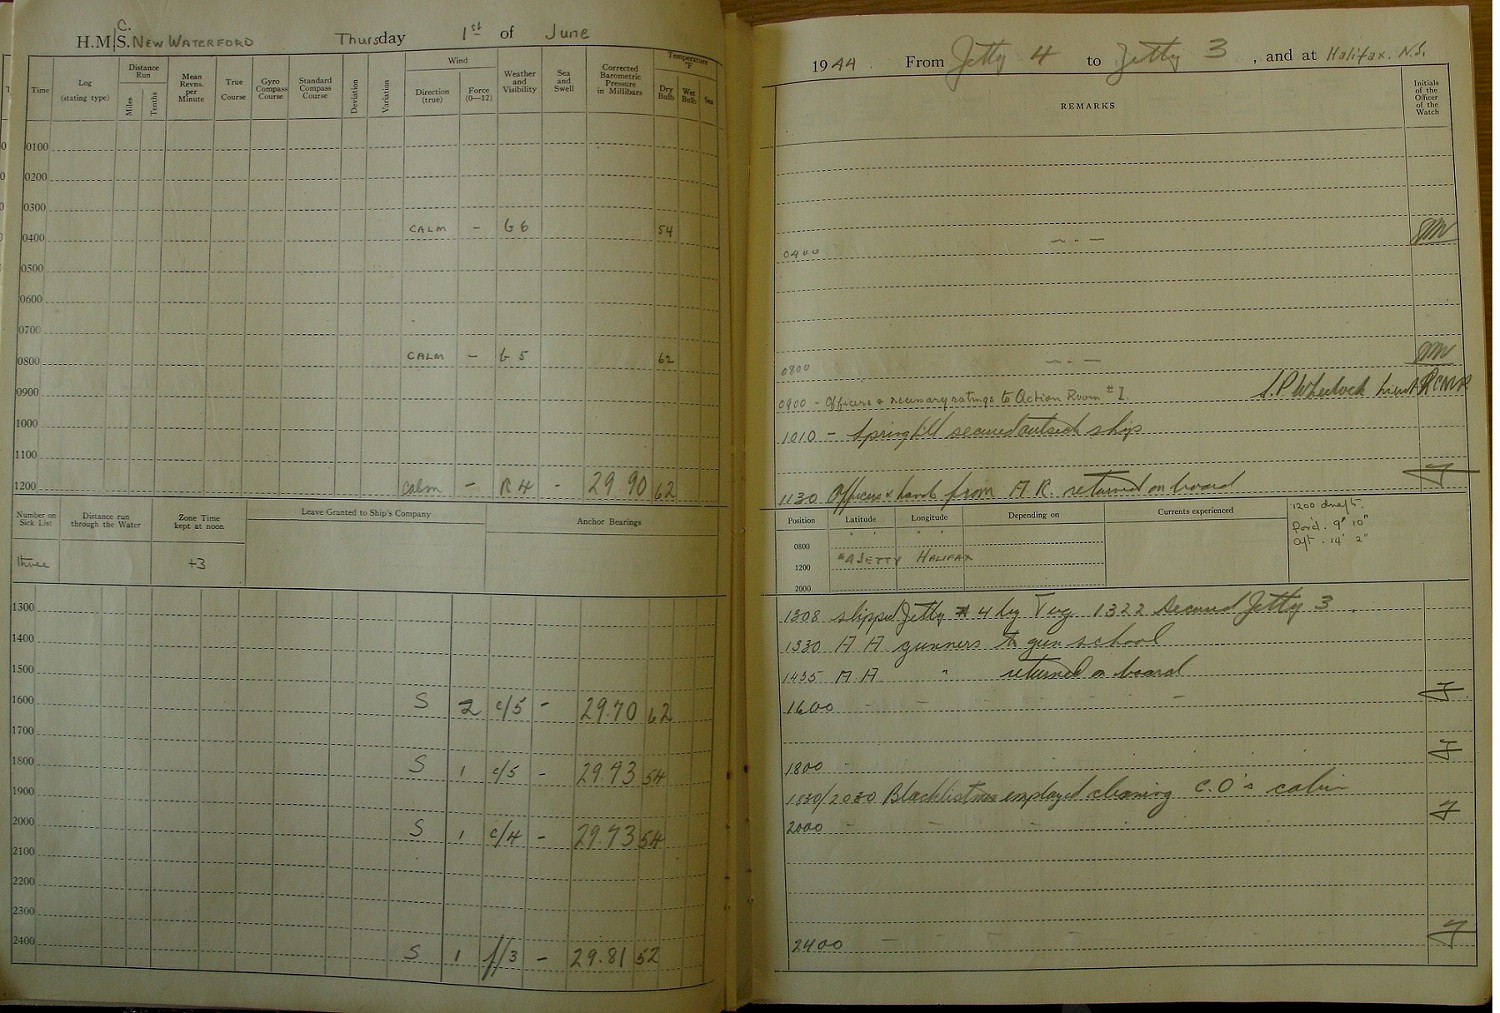 H.M.C.S. NEW WATERFORD Thursday 1st of June
Time
Log (stating type)
Distance Run
Miles Tenths
Mean Revns. per Minute
True Course
Gyro Compass Course
Standard Compass Course
Deviation
Variation
Wind
Direction (true)
Force (0—12)
Weather and Visibility
Sea and Swell
Corrected Barometric Pressure in Millibars
Temperature °F
Dry Bulb
Wet Bulb
Sea
0100
0200
0300
0400 CALM - b 6 54
0500
0600
0700
0800 CALM - b 5 62
0900
1000
1100
1200 Calm - R 4 - 29.90 62
Number on Sick List
Distance run through the Water
Zone Time kept at noon
Leave Granted to Ship's Company
Anchor Bearings
three +3
1300
1400
1500
1600 S 2 c/5 - 29.70 62
1700
1800 S 1 c/5 - 29.93 54
1900
2000 S 1 c/4 - 29.93 54
2100
2200
2300
2400 S 1 f/3 - 29.81 52
1944. From Jetty 4 to Jetty 3, and at Halifax, N.S.
REMARKS
Initials of the Officer of the Watch
0400 - . -
0800 - . -
0900 - Officers & necessary ratings to Action Room #1. S.P. Wheelock Lieut RCNVR
1010 - Springhill secured outside ship
1130 Officers & hands from A.R. returned on board
Position Latitude Longitude Depending on Currents experienced
0800
1200 #4 JETTY HALIFAX
2000
1200 draft.
for'd. 9' 10"
aft. 14' 2"
1308 slipped Jetty # 4 by Tug 1322 Secured Jetty 3
1330 A A gunners to gun school
1435 A A " returned on board
1600 - - - -
1800 -
1830/2030 Blacklistmen employed cleaning C.O's cabin
2000 - - -
2400 - - - - - -